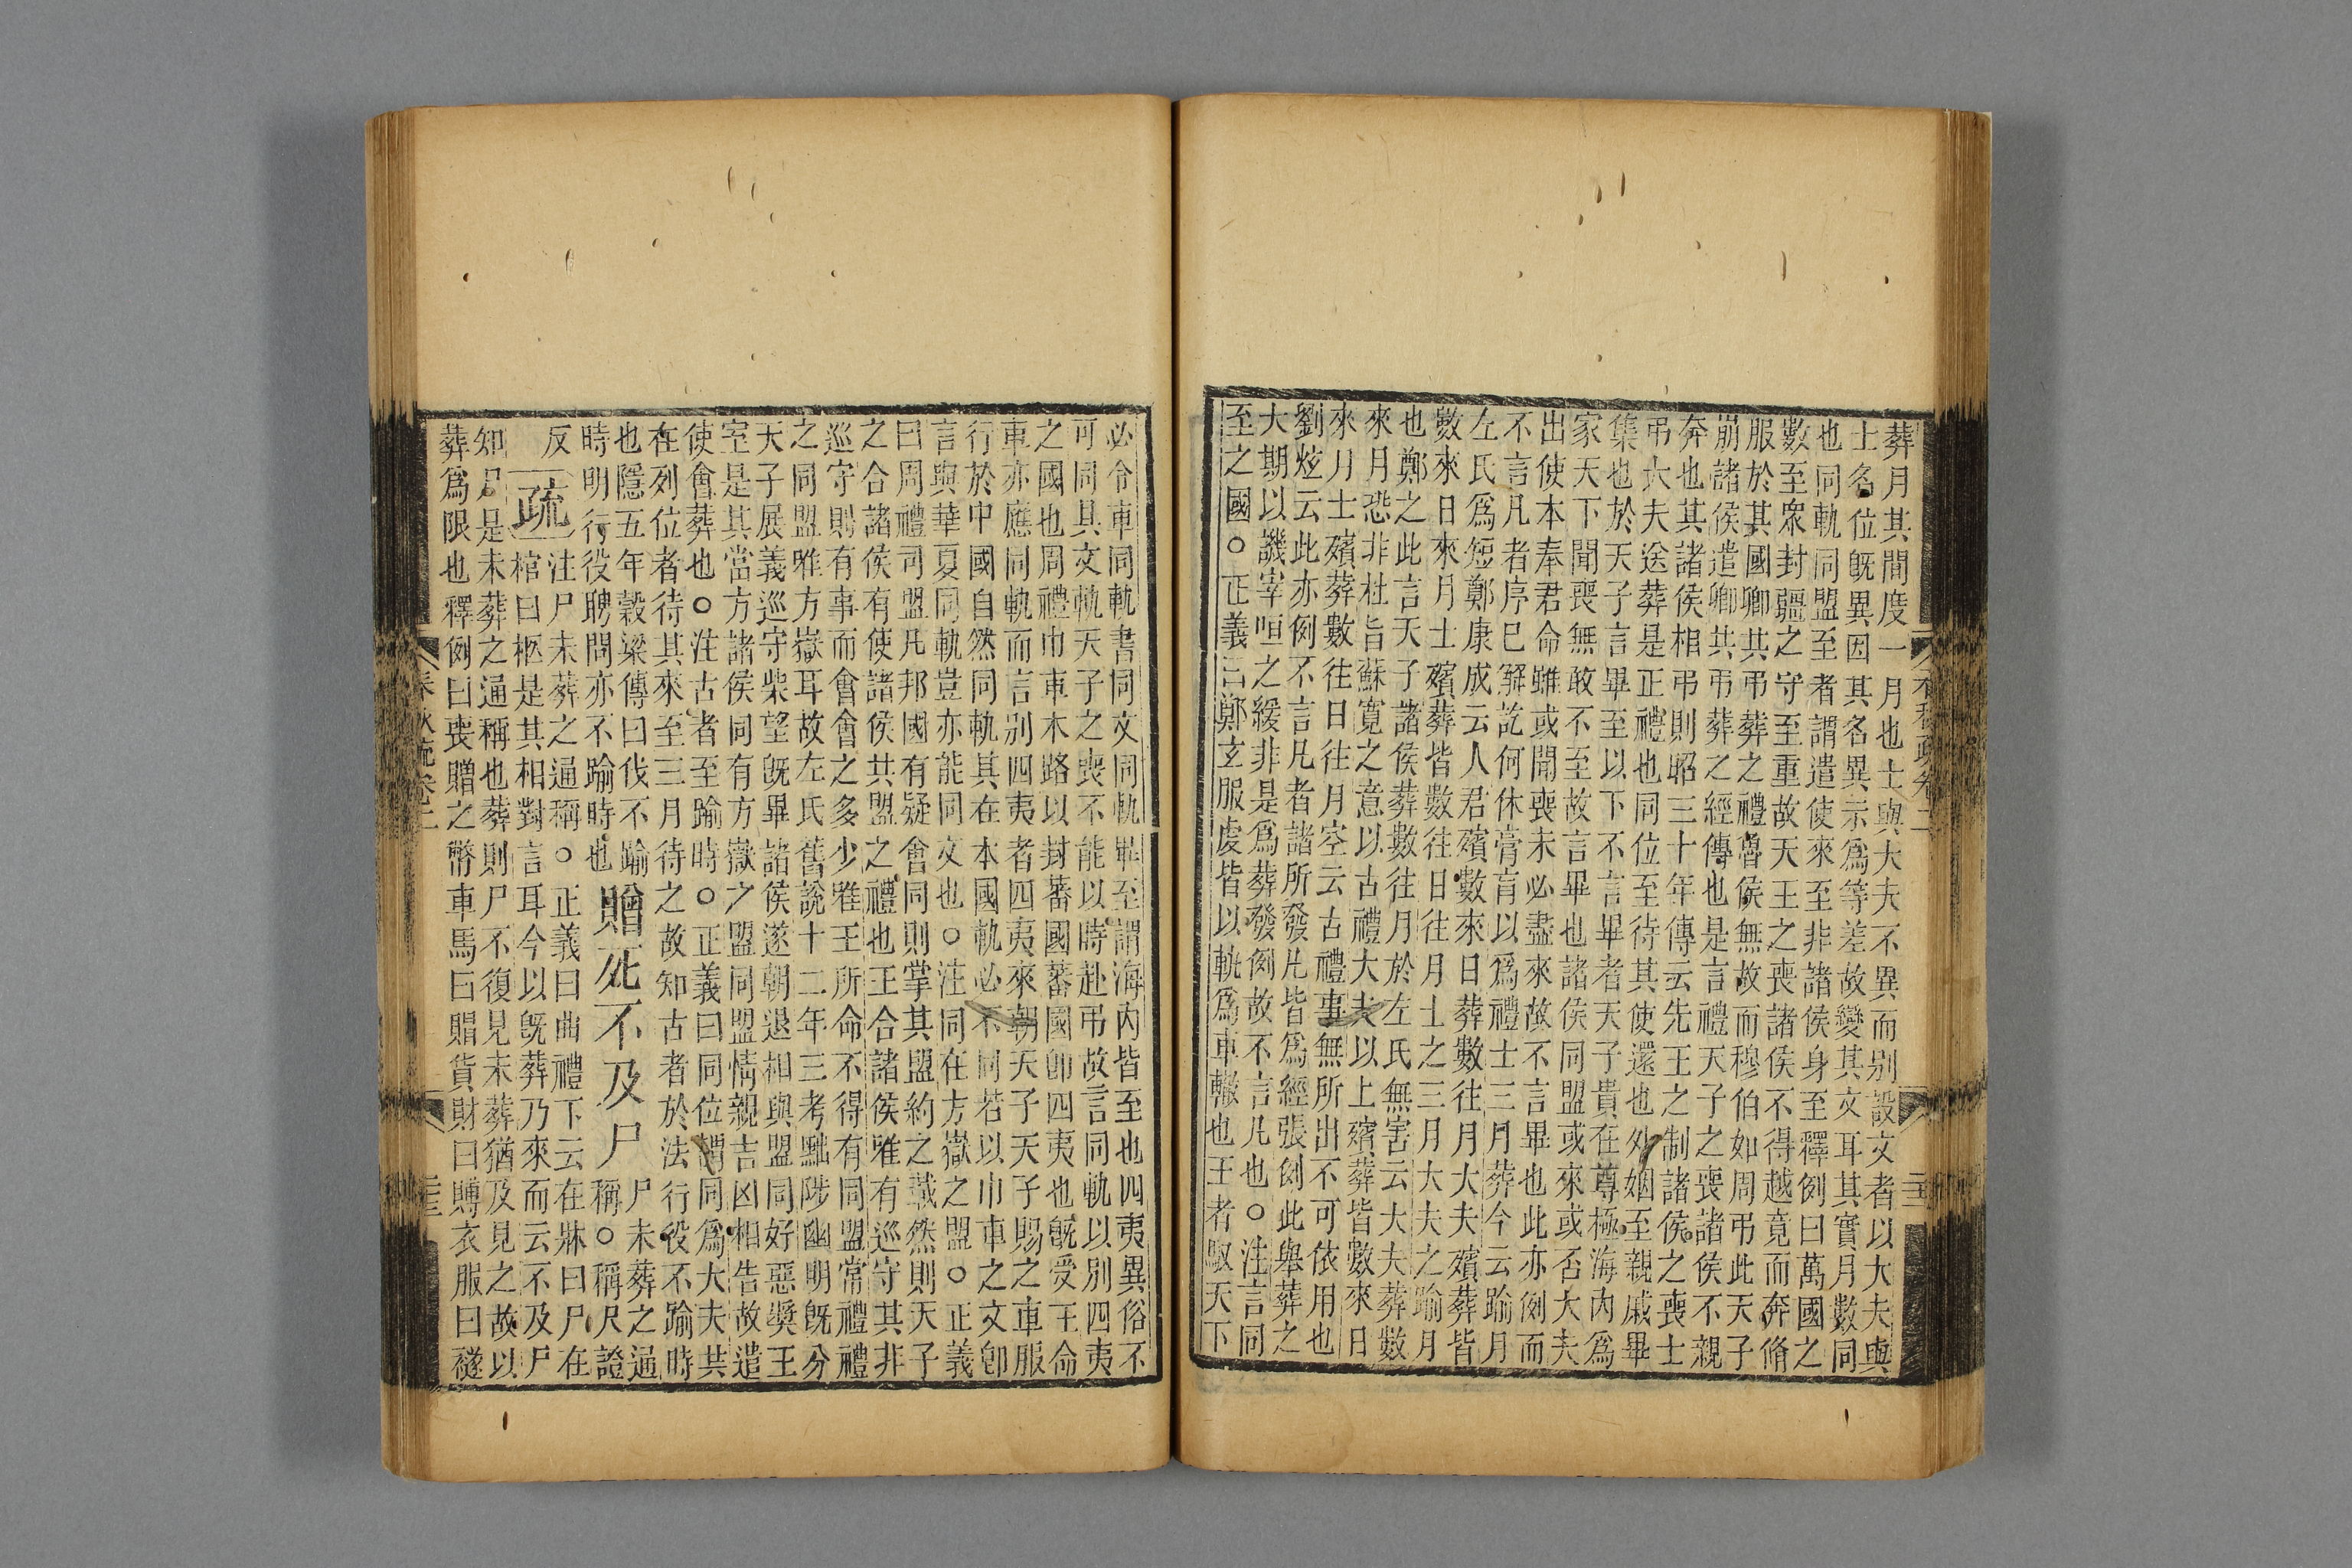 葬月其間度一月也士與大夫不異而别設文者以大夫與
士名位旣異因其名異示爲等差故變其文耳其實月數同
也同軌同盟至者謂遣使來至非諸侯身至釋例曰萬國之
數至衆封疆之守至重故天王之喪諸侯不得越竟而奔脩
服於其國卿共弔葬之禮魯侯無故而穆伯如周弔此天子
崩諸侯遣卿共弔葬之經傳也是言禮天子之喪諸侯不親
奔也其諸侯相弔則昭三十年傳云先王之制諸侯之喪士
弔大夫送葬是正禮也同位至待其使還也外姻至親戚畢
集也於天子言畢至以下不言畢者天子貴在尊極海内爲
家天下聞喪無敢不至故言畢也諸侯同盟或來或否大夫
出使本奉君命雖或聞喪未必盡來故不言畢也此亦例而
不言凡者序已解訖何休膏肓以爲禮士三月葬今云踰月
左氏爲短鄭康成云人君殯數來日葬數往月大夫殯葬皆
數來日來月士殯葬皆數往日往月士之三月大夫之踰月
也鄭之此言天子諸侯葬數往月於左氏無害云大夫葬數
來月恐非杜旨蘇寛之意以古禮大夫以上殯葬皆數來日
來月士殯葬數往日往月空云古禮事無所出不可依用也
劉炫云此亦例不言凡者諸所發凡皆爲經張例此舉葬之
大期以譏宰咺之緩非是爲葬發例故不言凡也○注言同
至之國○正義曰鄭玄服虔皆以軌爲車轍也王者馭天下
必令車同軌書同文同軌畢至謂海内皆至也四夷異俗不
可同其文軌天子之喪不能以時赴弔故言同軌以别四夷
之國也周禮巾車木路以封蕃國蕃國卽四夷也旣受王命
車亦應同軌而言别四夷者四夷來朝天子天子賜之車服
行於中國自然同軌其在本國軌必不同若以巾車之文卽
言與華夏同軌豈亦能同文也○注同在方嶽之盟○正義
曰周禮司盟凡邦國有疑會同則掌其盟約之載然則天子
之合諸侯有使諸侯共盟之禮也王合諸侯雖有巡守其非
巡守則有事而會會之多少唯王所命不得有同盟常禮禮
之同盟唯方嶽耳故左氏舊說十二年三考黜陟幽明旣分
天子展義巡守柴望旣畢諸侯遂朝退相與盟同好惡奬王
室是其當方諸侯同有方嶽之盟同盟情親吉凶相告故遣
使會葬也○注古者至踰時○正義曰同位謂同爲大夫共
在列位者待其來至三月待之故知古者於法行役不踰時
也隱五年穀梁傳曰伐不踰
時明行役聘問亦不踰時也
贈死不及尸
尸未葬之通
稱○稱尺證
反
疏
注尸未葬之通稱○正義曰曲禮下云在牀曰尸在
棺曰柩是其相對言耳今以旣葬乃來而云不及尸
知尸是未葬之通稱也葬則尸不復見未葬猶及見之故以
葬爲限也釋例曰喪贈之幣車馬曰賵貨財曰賻衣服曰襚
春秋疏卷二